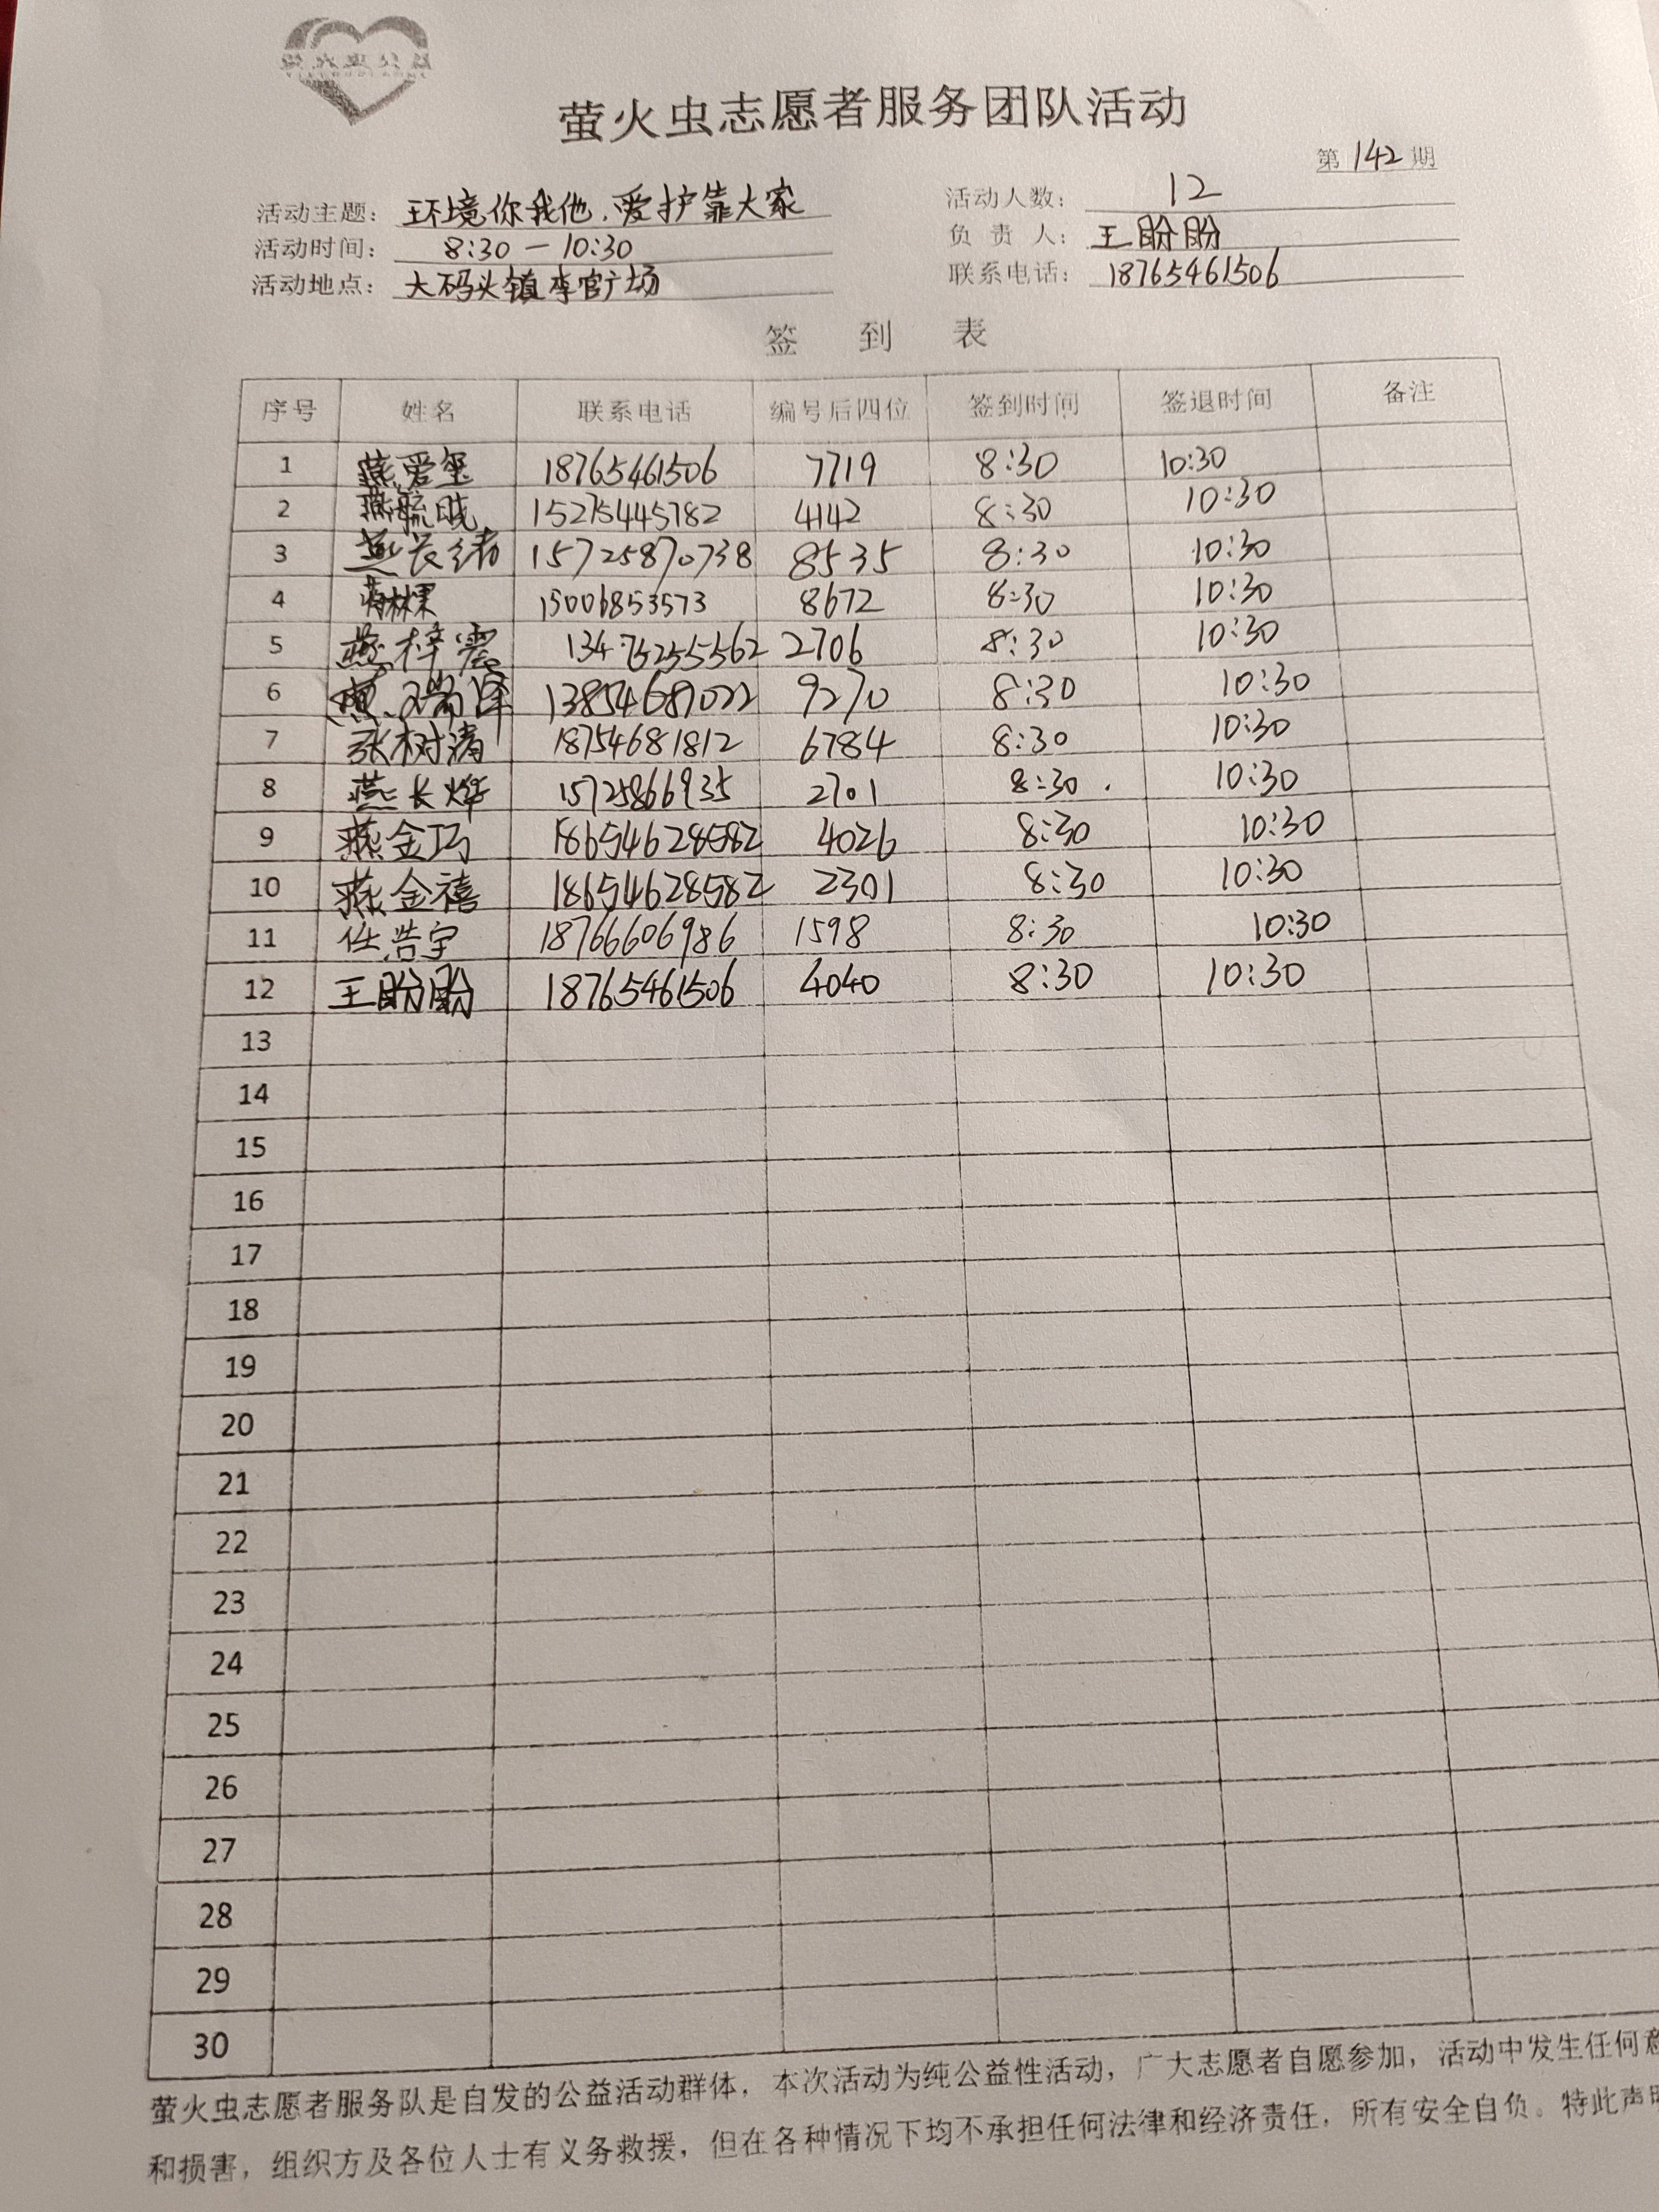 萤火虫公益
萤火虫志愿者服务团队活动
第 142 期
活动主题: 环境你我他.爱护靠大家 活动人数: 12
活动时间: 8:30 — 10:30 负责人: 王盼盼
活动地点: 大码头镇李官广场 联系电话: 18765461506
签到表
序号 姓名 联系电话 编号后四位 签到时间 签退时间 备注
1 燕爱玺 18765461506 7719 8:30 10:30
2 燕毓晓 15275445782 4142 8:30 10:30
3 燕长绪 15725870738 8535 8:30 10:30
4 蒋林果 15006853573 8672 8:30 10:30
5 燕梓震 13475255562 2706 8:30 10:30
6 燕瑞泽 13854687022 9270 8:30 10:30
7 张树涛 18754681812 6784 8:30 10:30
8 燕长烨 15725866935 2701 8:30 10:30
9 燕金巧 18654628582 4026 8:30 10:30
10 燕金禧 18654628582 2301 8:30 10:30
11 任浩宇 18766606986 1598 8:30 10:30
12 王盼盼 18765461506 4040 8:30 10:30
13
14
15
16
17
18
19
20
21
22
23
24
25
26
27
28
29
30
萤火虫志愿者服务队是自发的公益活动群体，本次活动为纯公益性活动，广大志愿者自愿参加，活动中发生任何意
和损害，组织方及各位人士有义务救援，但在各种情况下均不承担任何法律和经济责任，所有安全自负。特此声明